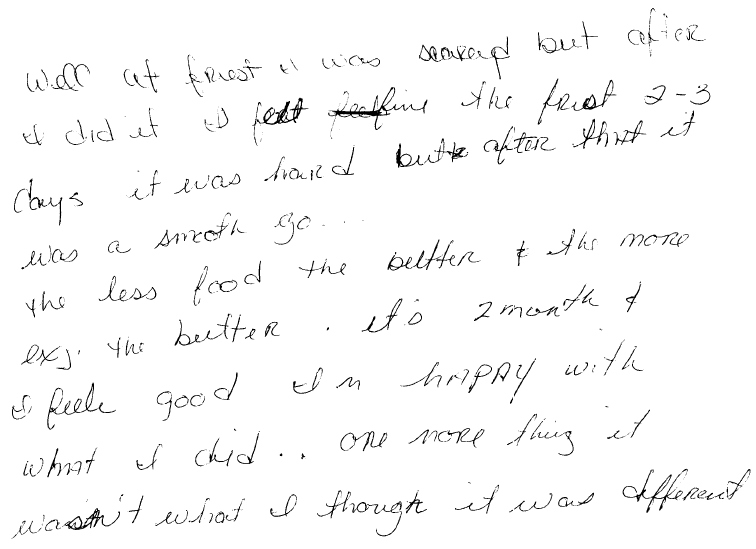 Well at friest I was scared but after
I did it I felt fine the friest 2-3
days it was hard but after that it
was a smooth go...
the less food the bettter & the more
exj. the better. it's 2 month &
I feele good I'm happay with
what I did.. one more thing it
wasn't what I though it was different